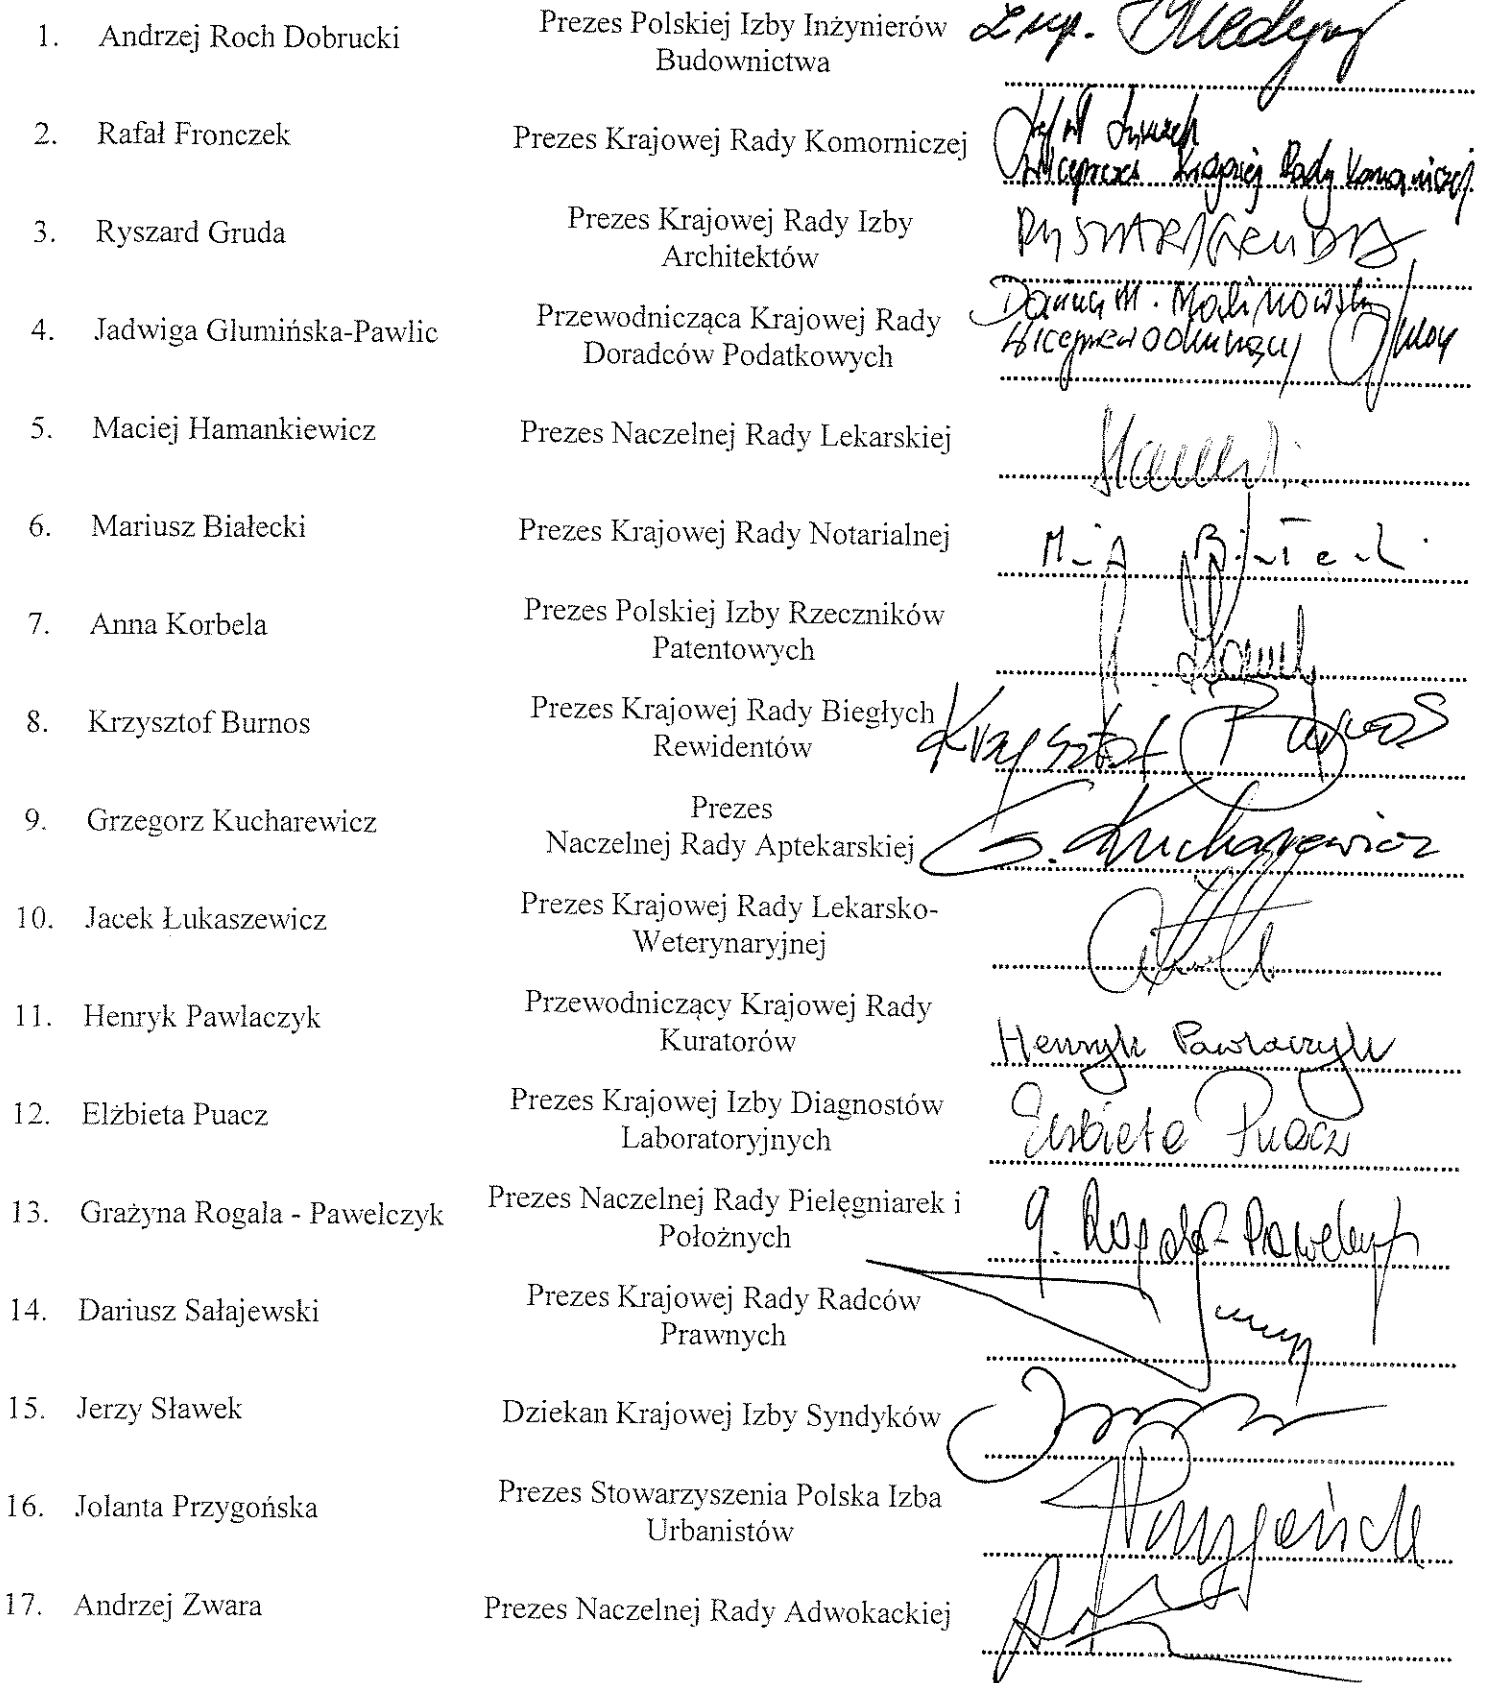 1. Andrzej Roch Dobrucki
Prezes Polskiej Izby Inżynierów
Budownictwa
2. Rafał Fronczek
Prezes Krajowej Rady Komorniczej
Wiceprezes Krajowej Rady Komorniczej
3. Ryszard Gruda
Prezes Krajowej Rady Izby
Architektów
RYSZARD GRUDA
4. Jadwiga Glumińska-Pawlic
Przewodnicząca Krajowej Rady
Doradców Podatkowych
M. Malinowski
Wiceprzewodniczący
5. Maciej Hamankiewicz
Prezes Naczelnej Rady Lekarskiej
6. Mariusz Białecki
Prezes Krajowej Rady Notarialnej
7. Anna Korbela
Prezes Polskiej Izby Rzeczników
Patentowych
8. Krzysztof Burnos
Prezes Krajowej Rady Biegłych
Rewidentów
Krzysztof Burnos
9. Grzegorz Kucharewicz
Prezes
Naczelnej Rady Aptekarskiej
G. Kucharewicz
10. Jacek Łukaszewicz
Prezes Krajowej Rady Lekarsko-
Weterynaryjnej
11. Henryk Pawlaczyk
Przewodniczący Krajowej Rady
Kuratorów
Henryk Pawlaczyk
12. Elżbieta Puacz
Prezes Krajowej Izby Diagnostów
Laboratoryjnych
Elżbieta Puacz
13. Grażyna Rogala - Pawelczyk
Prezes Naczelnej Rady Pielęgniarek i
Położnych
G. Rogala-Pawelczyk
14. Dariusz Sałajewski
Prezes Krajowej Rady Radców
Prawnych
15. Jerzy Sławek
Dziekan Krajowej Izby Syndyków
16. Jolanta Przygońska
Prezes Stowarzyszenia Polska Izba
Urbanistów
17. Andrzej Zwara
Prezes Naczelnej Rady Adwokackiej